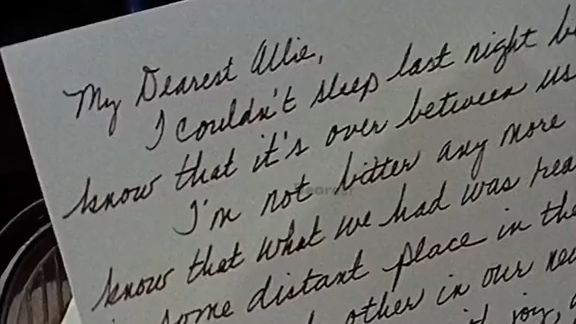 My Dearest Allie,
I couldn't sleep last night
know that it's over between us
I'm not bitter any more
know that what we had was
some distant place in the
other in our
joy,